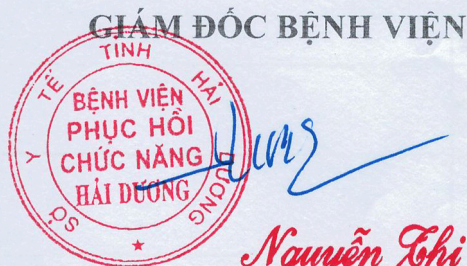 GIÁM ĐỐC BỆNH VIỆN
SỞ Y TẾ TỈNH HẢI DƯƠNG
BỆNH VIỆN
PHỤC HỒI
CHỨC NĂNG
HẢI DƯƠNG
Nguyễn Thị